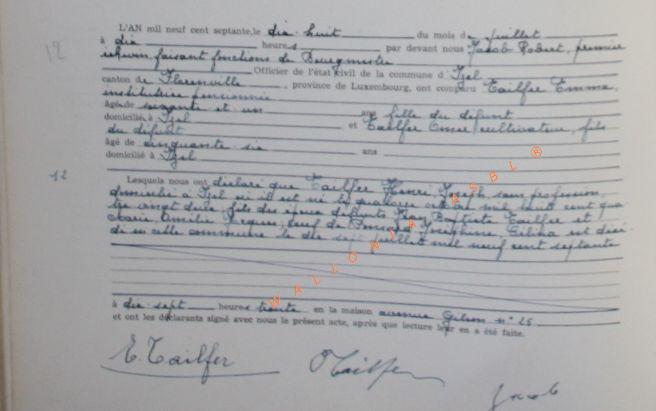 L'AN mil neuf cent septante, le dix-huit du mois de juillet
12
à dix heures par devant nous Jacob Robert, premier
échevin, faisant fonctions de Bourgmestre
Officier de l'état civil de la commune d' Izel
canton de Florenville, province de Luxembourg, ont comparu Tailfer Emma,
institutrice pensionnée
âgé de soixante et un ans fille du défunt
domicilié à Izel et Tailfer Omer, cultivateur, fils
du défunt
âgé de cinquante six ans
domicilié à Izel
12
Lesquels nous ont déclaré que Tailfer Henri Joseph, sans profession
domicilié à Izel où il est né le quatorze mil huit cent qua
tre vingt deux, fils des époux défunts Jean Baptiste Tailfer et
Marie Amélie Jacques, veuf de Joséphine, est décé-
dé en cette commune le dix sept juillet mil neuf cent septante
à dix sept heures trente en la maison avenue Gilson n° 25
et ont les déclarants signé avec nous le présent acte, après que lecture leur en a été faite.
E. Tailfer
O Tailfer
Jacob
WALLONIA ASBL ®